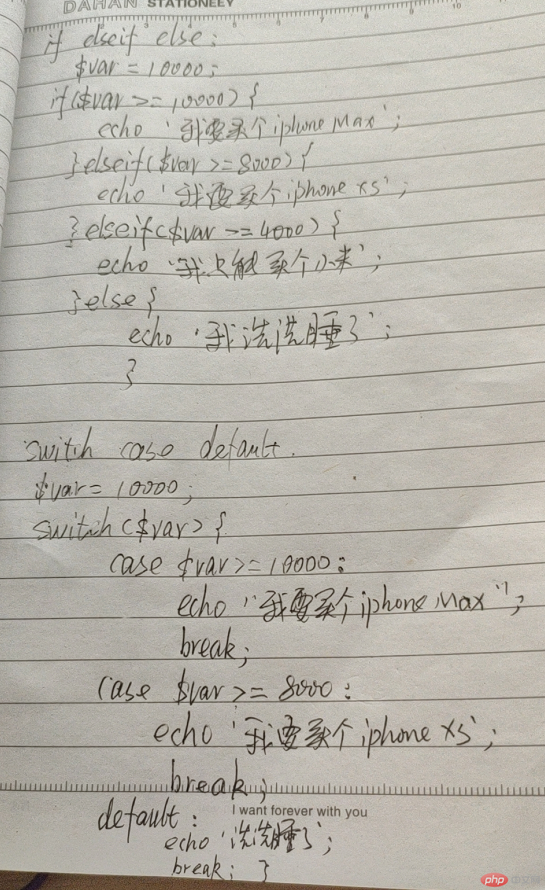 DAHAN STATIONEEY
if elseif else:
$var = 10000;
if($var >= 10000) {
echo '我要买个iphone Max';
}elseif($var >= 8000) {
echo '我要买个iphone xs';
}elseif($var >= 4000) {
echo '我只能买个小米';
}else {
echo '我洗洗睡了';
}
switch case default.
$var = 10000;
switch($var) {
case $var >= 10000:
echo '我要买个iphone Max';
break;
case $var >= 8000:
echo '我要买个iphone xs';
break;
I want forever with you
default:
echo '洗洗睡了';
break; }
php